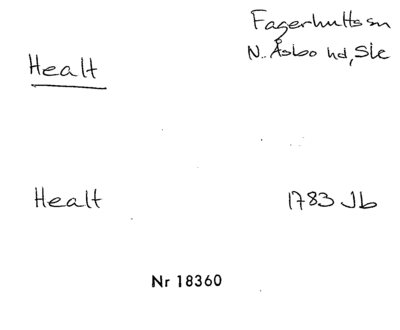 Fagerhults sn
N. Åsbo hd, Sk
Healt
Healt 1783 Jb
Nr 18360